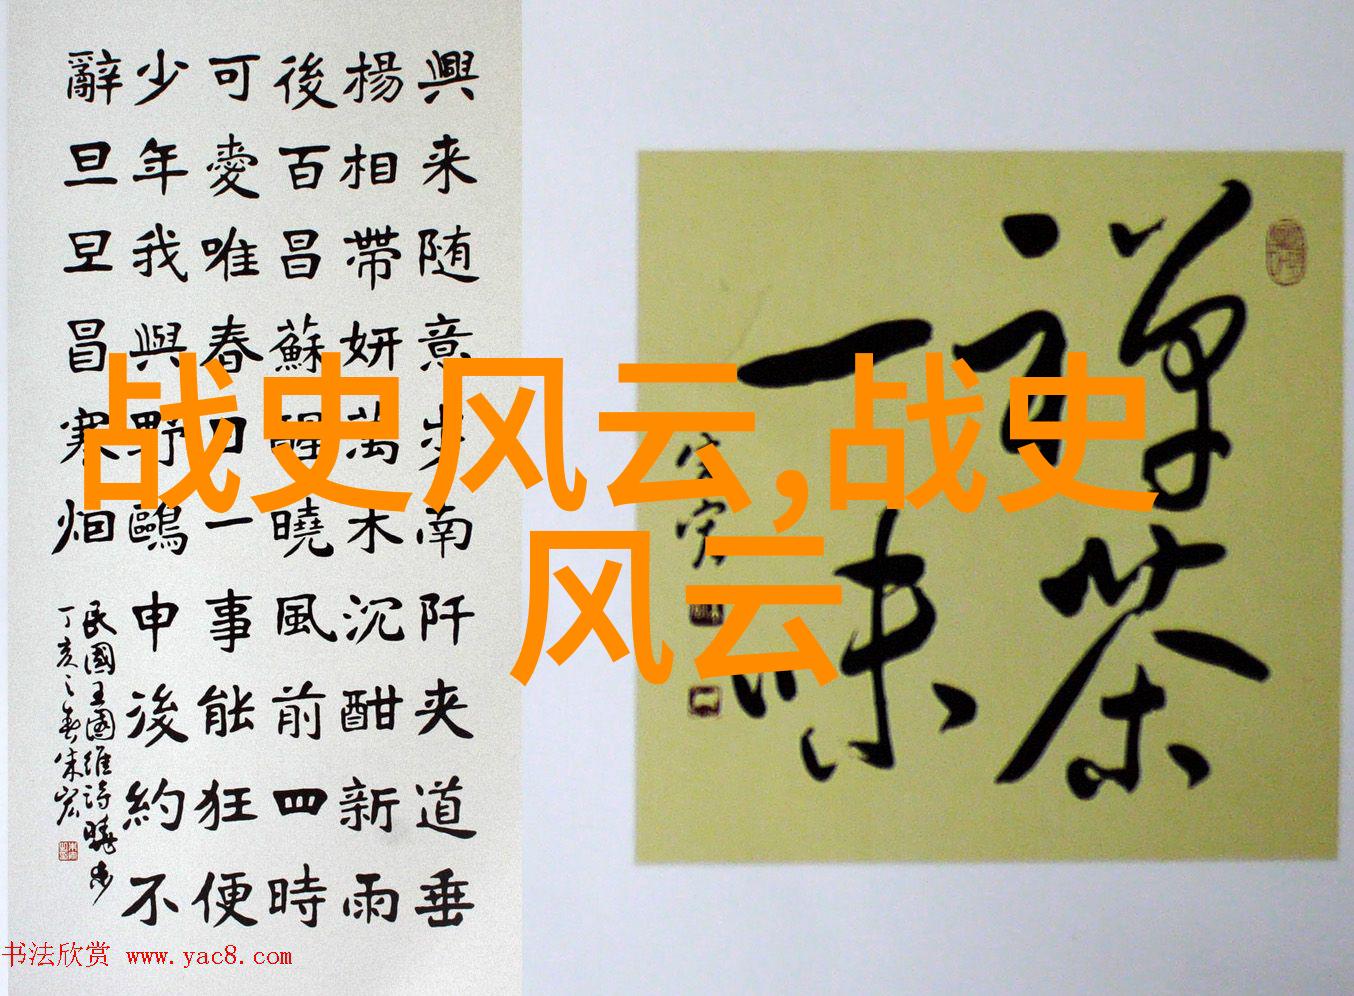 興来随意步南阡夹道垂
楊相帶妍萬木沉酣新雨
後百昌蘇醒曉風前四時
可愛唯春日一事能狂便
少年我與野鷗申後約不
辭旦旦冒寒烟
民國王國維詩曉步
丁亥之春朱宏
禅茶
一味
战史风云,战史
风云
书法欣赏 www.yac8.com